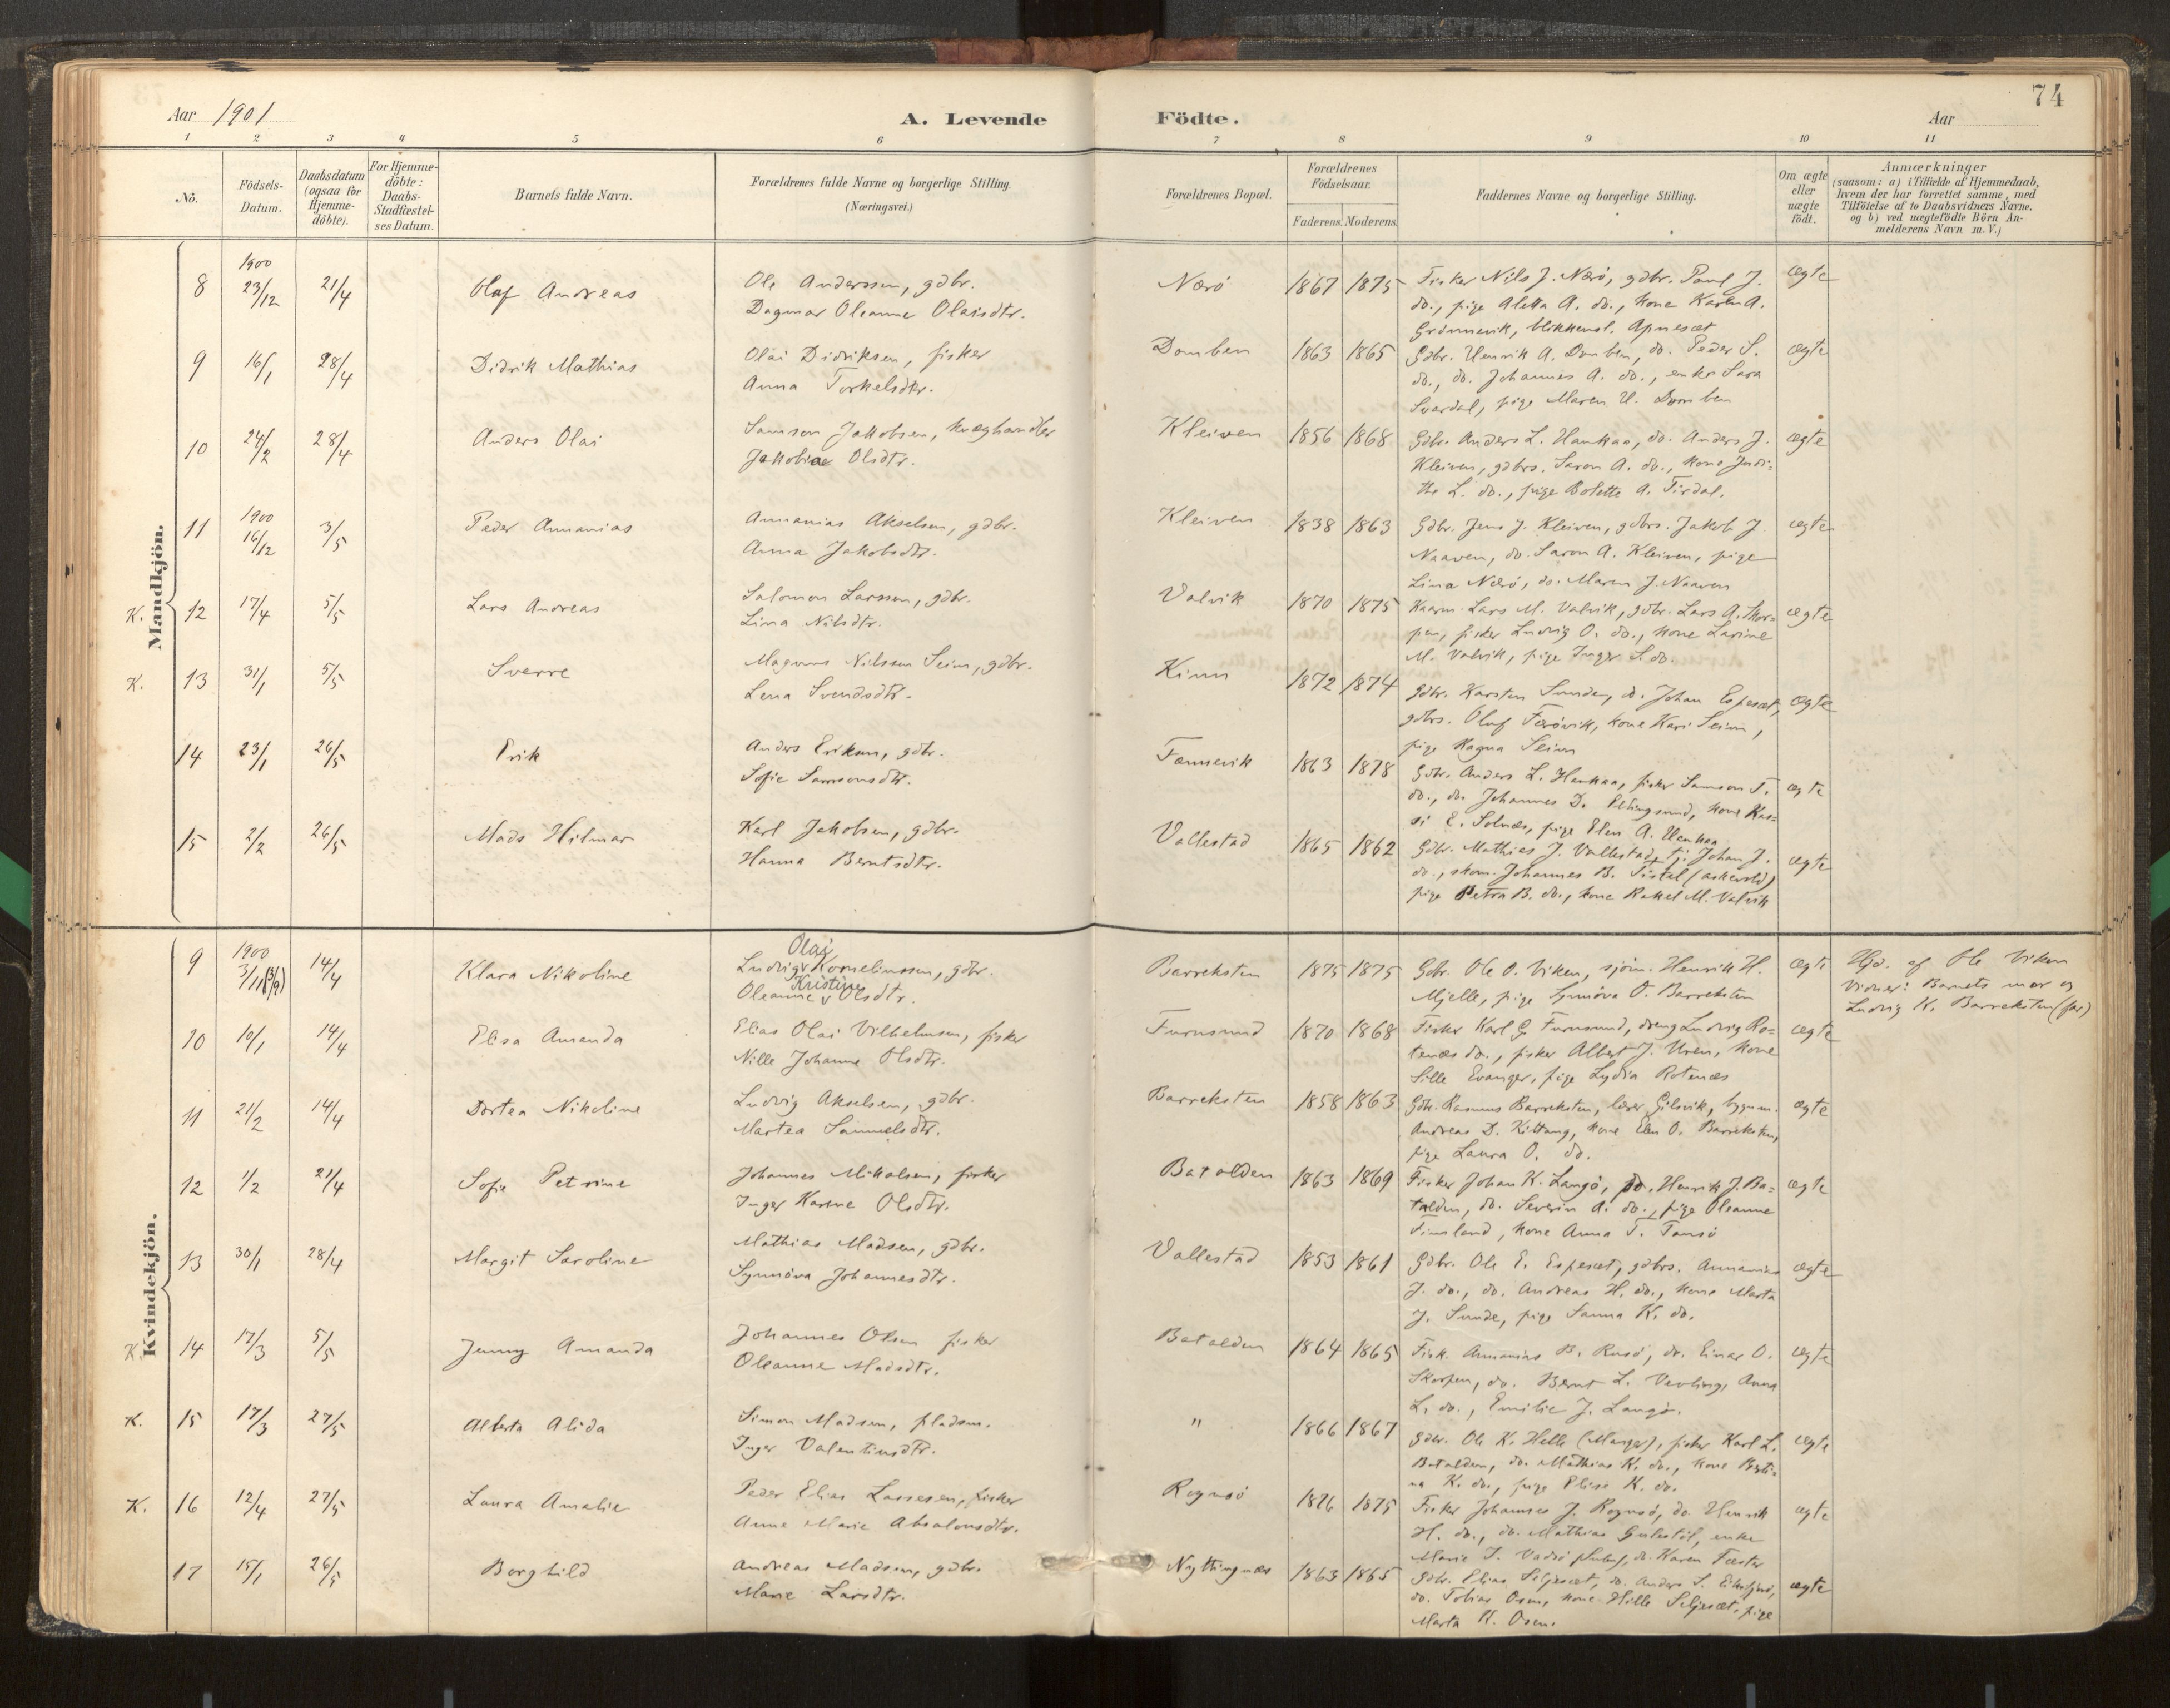 74
Aar 1901
A. Levende Födte.
Aar
1 2 3 4 5 6 7 8 9 10 11
No.
Födsels-Datum.
Daabsdatum (ogsaa for Hjemme-döbte).
For Hjemme-döbte: Daabs-Stadfæstel-ses Datum.
Barnets fulde Navn.
Forældrenes fulde Navne og borgerlige Stilling.
(Næringsvei.)
Forældrenes Bopæl.
Forældrenes Födselsaar.
Faderens. Moderens.
Faddernes Navne og borgerlige Stilling.
Om ægte eller uægte födt.
Anmærkninger
(saasom: a) i Tilfælde af Hjemmedaab,
hvem der har forrettet samme, med
Tilföielse af to Daabsvidners Navne.
og b) ved uægtefödte Börn An-
melderens Navn m. V.)
Mandkjön.
8 1900 23/12 21/4 Olaf Andreas
Ole Anderssen, gdbr.
Dagmar Oleanne Olaisdtr.
Nærö 1867 1875
Fisker Nils J. Nærö, gdbr. Paul J.
do., pige Aletta A. do., kone Karen A.
Grönnevik, blikkensl. Apnesæt
ægte
9 16/1 28/4 Didrik Mathias
Olai Didriksen, fisker
Anna Torkelsdtr.
Domben 1863 1865
Gdbr. Henrik A. Domben, do. Peder S.
do., do. Johannes A. do., enke Sara
Svardal, pige Maren H. Domben
ægte
10 24/2 28/4 Anders Olai
Samson Jakobsen, kvæghandler
Jakobine Olsdtr.
Kleiven 1856 1868
Gdbr. Anders L. Haukaa, do. Anders J.
Kleiven, gdbrs. Saron A. do., kone Judi-
the L. do., pige Bolette A. Tirdal.
ægte
11 1900 16/12 3/5 Peder Annanias
Annanias Akselsen, gdbr.
Anna Jakobsdtr.
Kleiven 1838 1863
Gdbr. Jens J. Kleiven, gdbrs. Jakob J.
Naaven, do. Saron A. Kleiven, pige
Lina Nærö, do. Maren J. Naaven
ægte
K. 12 17/4 5/5 Lars Andreas
Salomon Larssen, gdbr.
Lina Nilsdtr.
Valvik 1870 1875
Kaarm. Lars M. Valvik, gdbr. Lars A. Skor-
pen, fisker Ludvig O. do., kone Larine
M. Valvik, pige Inger S. do.
ægte
K. 13 31/1 5/5 Sverre
Magnus Nilssen Seim, gdbr.
Lena Svendsdtr.
Kinn 1872 1874
Gdbr. Karsten Sunde, do. Johan Espesæt,
gdbrs. Oluf Færövik, kone Kari Seim,
pige Ragna Seim
ægte
14 23/1 26/5 Erik
Anders Eriksen, gdbr.
Sofie Samsonsdtr.
Fænnevik 1863 1878
Gdbr. Anders L. Haukaa, fisker Samson T.
do., do. Johannes D. Ellingsund, kone Kas-
si E. Solnæs, pige Elen A. Haukaa
ægte
15 2/2 26/5 Mads Hilmar
Karl Jakobsen, gdbr.
Hanna Berntsdtr.
Vallestad 1865 1862
Gdbr. Mathias J. Vallestad, tj. Johan J.
do., skom. Johannes B. Sistel (askevold)
pige Petra B. do., kone Rakel M. Valvik
ægte
Kvindekjön.
9 1900 3/11 (3/9) 14/4 Klara Nikoline
Olai
Ludvig v Korneliussen, gdbr.
Kristine
Oleanne v Olsdtr.
Barreksten 1875 1875
Gdbr. Ole O. Viken, sjöm. Henrik H.
Mjelle, pige Synnöva O. Barreksten
ægte
Hjd. af Ole Viken
Vidner: Barnets mor og
Ludvig K. Barreksten (far)
10 10/1 14/4 Elisa Amanda
Elias Olai Vilhelmsen, fisker
Nille Johanne Olsdtr.
Furusund 1870 1868
Fisker Karl G. Furusund, dreng Ludvig Ro-
tenæs do., fisker Albert J. Uren, kone
Sille Evanger, pige Lydia Rotenæs
ægte
11 21/2 14/4 Dortea Nikoline
Ludvig Akselsen, gdbr.
Martea Samuelsdtr.
Barreksten 1858 1863
Gdbr. Rasmus Barreksten, lærer Gilsvik, bygsm.
Andreas D. Kittang, kone Elen O. Barreksten,
pige Laura O. do.
ægte
12 1/2 21/4 Sofie Petrine
Johannes Mikalsen, fisker
Inger Karine Olsdtr.
Batalden 1863 1869
Fisker Johan K. Langö, do. Henrik J. Ba-
talden, do. Severin A. do., pige Oleanne
Fimland, kone Anna T. Tansö
ægte
13 30/1 28/4 Margit Saroline
Mathias Madsen, gdbr.
Synnöva Johannesdtr.
Vallestad 1853 1861
Gdbr. Ole E. Espesæt, gdbrs. Annanias
J. do., do. Andreas H. do., kone Marta
J. Sunde, pige Sanna K. do.
ægte
K. 14 17/3 5/5 Jenny Amanda
Johannes Olsen fisker
Oleanne Madsdtr.
Batalden 1864 1865
Fisk. Annanias B. Rusö, do. Einar O.
Skorpen, do. Bernt L. Vevling, Anna
L. do., Emilie J. Langö.
ægte
K. 15 17/3 27/5 Alberta Alida
Simon Madsen, pladsm.
Inger Valentinsdtr.
" 1866 1867
Gdbr. Ole K. Helle (Manger), fisker Karl L.
Batalden, do. Mathias K. do., kone Berti-
na K. do., pige Elise K. do.
ægte
K. 16 12/4 27/5 Laura Amalie
Peder Elias Lassesen, fisker
Anne Marie Absalonsdtr.
Rognsö 1876 1875
Fisker Johannes J. Rognsö, do. Henrik
H. do., do. Mathias Gulestöl, enke
Marie I. Vadsö, do. Karen Fæster
ægte
17 15/1 26/5 Borghild
Andreas Madsen, gdbr.
Marie Larsdtr.
Nyttingnæs 1863 1865
Gdbr. Elias Seljesæt, do. Anders S.
do. Tobias Osen, kone Hille Seljesæt, pige
Marta K. Osen.
ægte